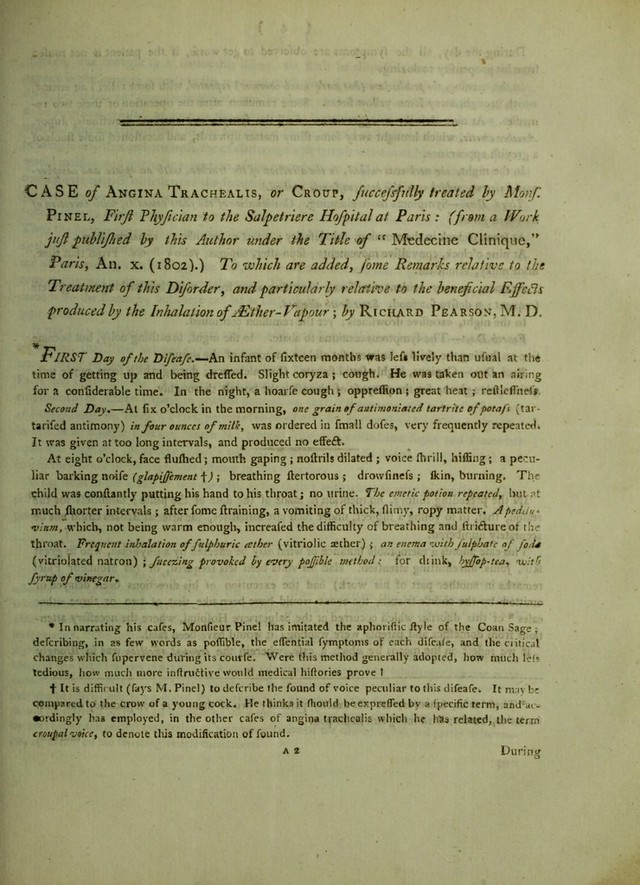 CASE of ANGINA TRACHEALIS, or CROUP, ſucceſsfully treated by Monſ.
PINEL, Firſt Phyſician to the Salpetriere Hoſpital at Paris : (from a Work
juſt publiſhed by this Author under the Title of “ Medecine Clinique,”
Paris, An. x. (1802).) To which are added, ſome Remarks relative to the
Treatment of this Diſorder, and particularly relative to the beneficial Effects
produced by the Inhalation of Æther-Vapour ; by RICHARD PEARSON, M. D.
*FIRST Day of the Diſeaſe.—An infant of ſixteen months was leſs lively than uſual at the
time of getting up and being dreſſed. Slight coryza ; cough. He was taken out an airing
for a conſiderable time. In the night, a hoarſe cough ; oppreſſion ; great heat ; reſtleſſneſs.
Second Day.—At ſix o'clock in the morning, one grain of antimoniated tartrite of potaſs (tar-
tariſed antimony) in four ounces of milk, was ordered in ſmall doſes, very frequently repeated.
It was given at too long intervals, and produced no effect.
At eight o'clock, face fluſhed ; mouth gaping ; noſtrils dilated ; voice ſhrill, hiſſing ; a pecu-
liar barking noiſe (glapiſſement †) ; breathing ſtertorous ; drowſineſs ; ſkin, burning. The
child was conſtantly putting his hand to his throat ; no urine. The emetic potion repeated, but at
much ſhorter intervals ; after ſome ſtraining, a vomiting of thick, ſlimy, ropy matter. A pedilu-
vium, which, not being warm enough, increaſed the difficulty of breathing and ſtricture of the
throat. Frequent inhalation of ſulphuric æther (vitriolic æther) ; an enema with ſulphate of ſoda
(vitriolated natron) ; ſneezing provoked by every poſſible method : for drink, hyſſop-tea, with
ſyrup of vinegar.
* In narrating his caſes, Monſieur Pinel has imitated the aphoriſtic ſtyle of the Coan Sage ;
deſcribing, in as few words as poſſible, the eſſential ſymptoms of each diſeaſe, and the critical
changes which ſupervene during its courſe. Were this method generally adopted, how much leſs
tedious, how much more inſtructive would medical hiſtories prove !
† It is difficult (ſays M. Pinel) to deſcribe the ſound of voice peculiar to this diſeaſe. It may be
compared to the crow of a young cock. He thinks it ſhould be expreſſed by a ſpecific term, and ac-
cordingly has employed, in the other caſes of angina trachealis which he has related, the term
croupal voice, to denote this modification of ſound.
A 2 During